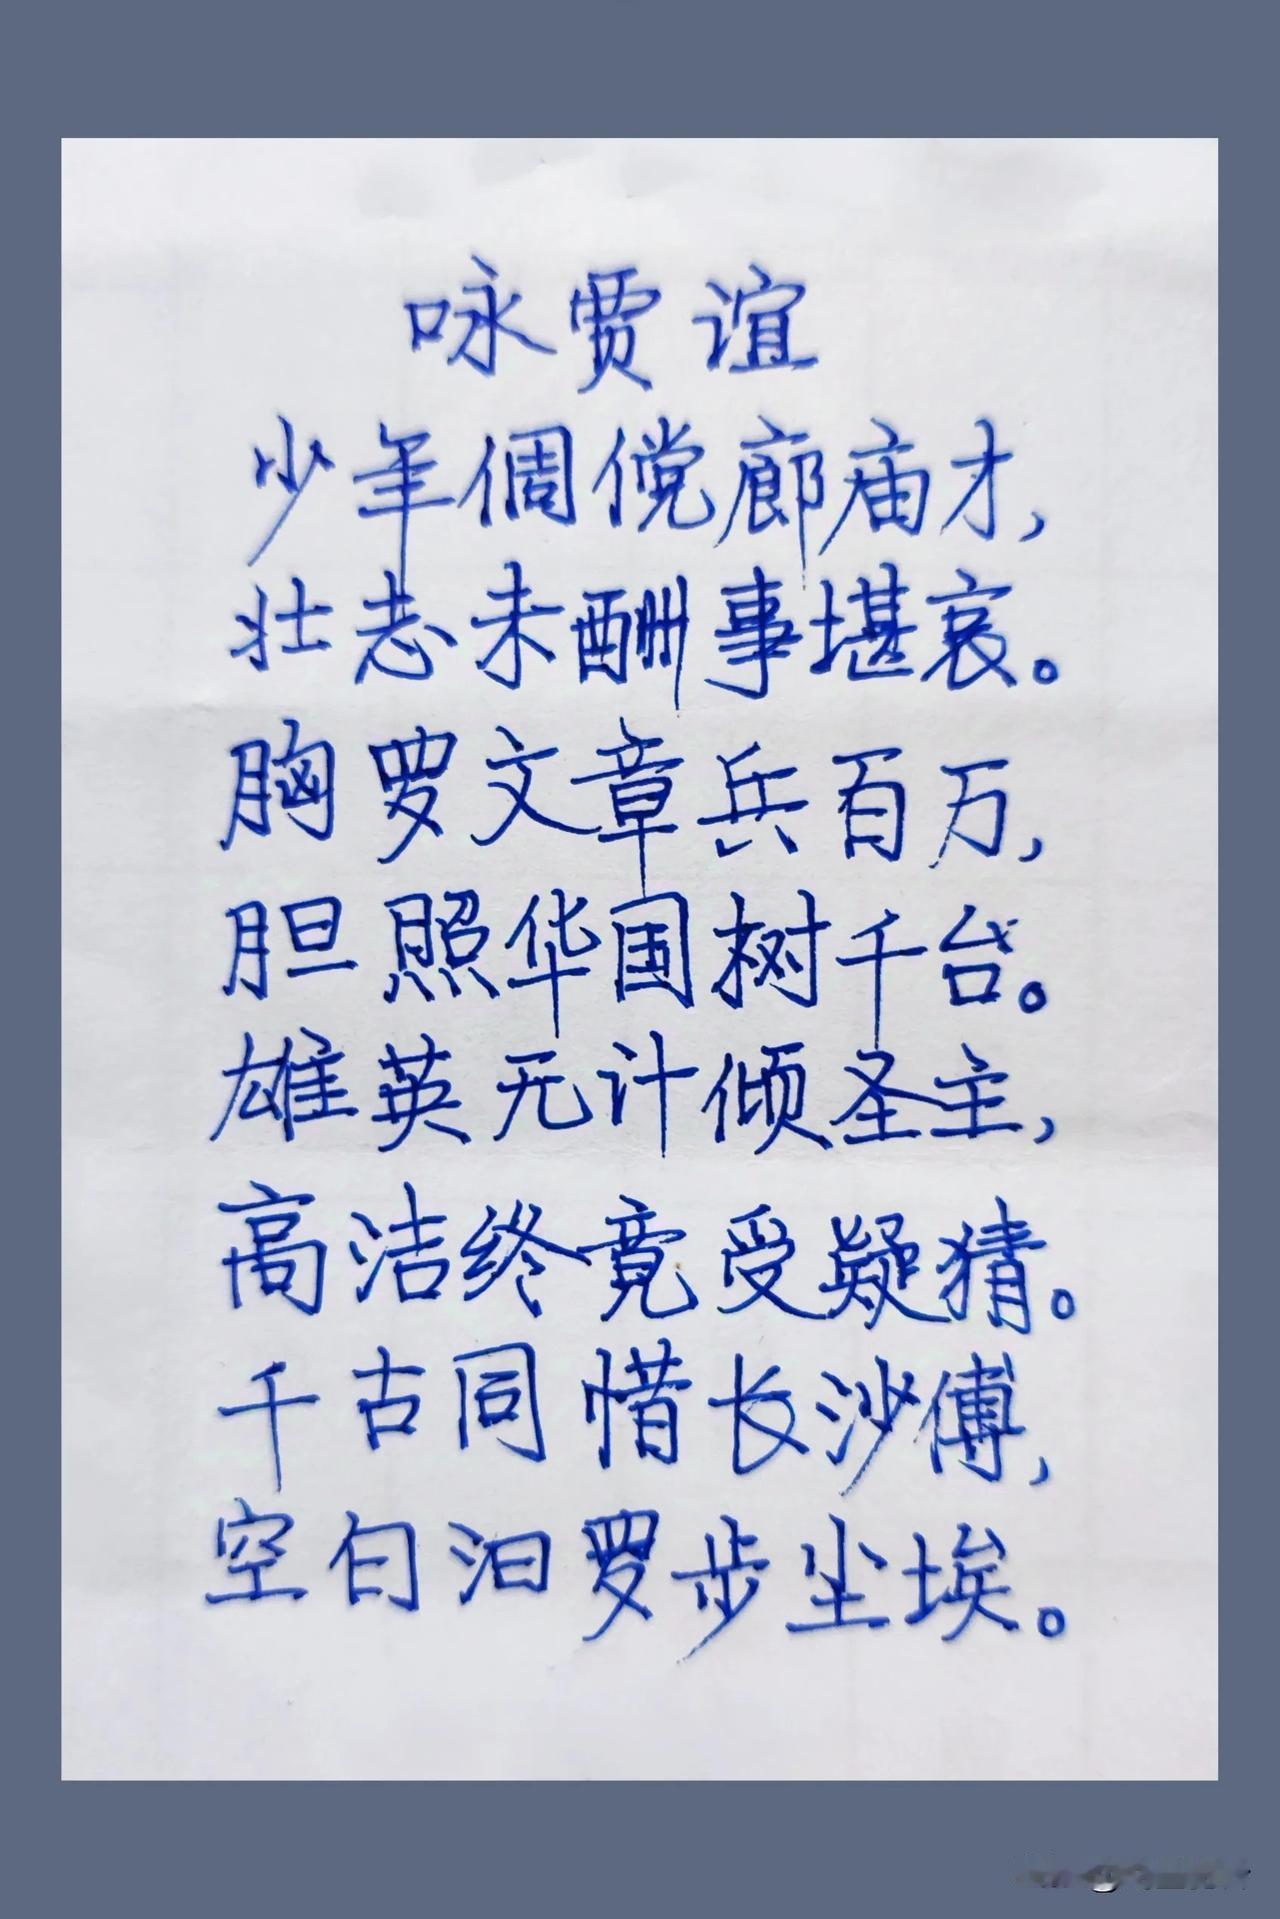 咏贾谊
少年倜傥廊庙才，
壮志未酬事堪哀。
胸罗文章兵百万，
胆照华国树千台。
雄英无计倾圣主，
高洁终竟受疑猜。
千古同惜长沙傅，
空白汨罗步尘埃。